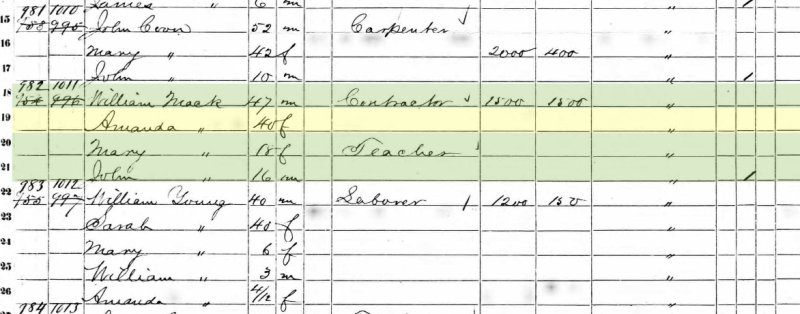 981 1010 James " 6 m
15 788 995 John Coon 52 m Carpenter
16 Mary " 42 f 2000 400 "
17 John " 10 m " 1
982 1011
18 996 William Mack 47 m Contractor 1500 1500 "
19 Amanda " 40 f "
20 Mary " 18 f Teacher "
21 John " 16 m " 1
983 1012
22 997 William Young 40 m Laborer 1 1200 150 "
23 Sarah " 40 f "
24 Mary " 6 f "
25 William " 3 m "
26 Amanda " 4/12 f "
984 1013